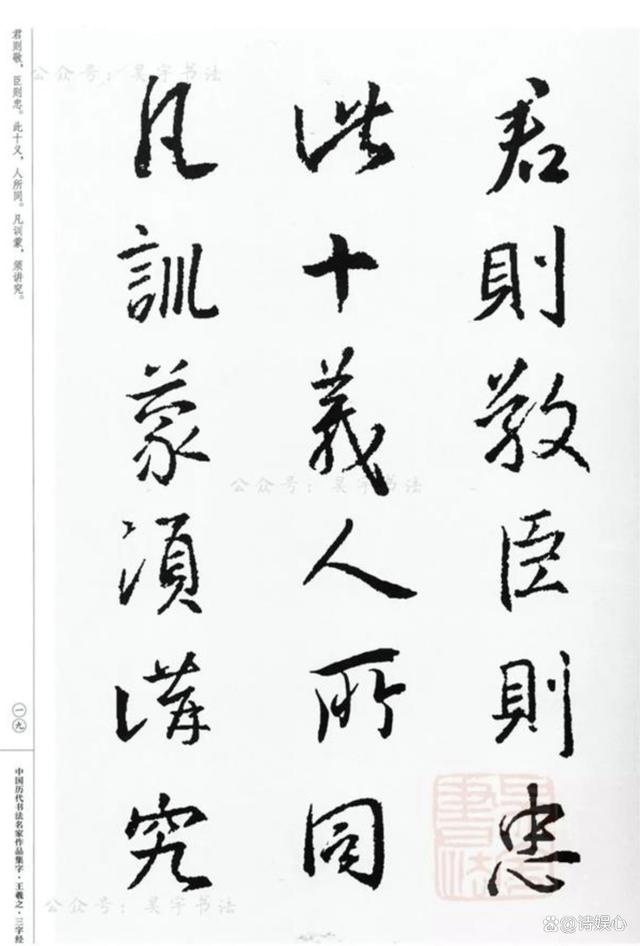 君則敬臣則忠
此十義人所同
凡訓蒙須講究
君则敬，臣则忠。此十义，人所同。凡训蒙，须讲究。
一九
中国历代书法名家作品集字·王羲之·三字经
公众号：昊宇书法
公众号：昊宇书法
公众号：昊宇书法
@诗娱心